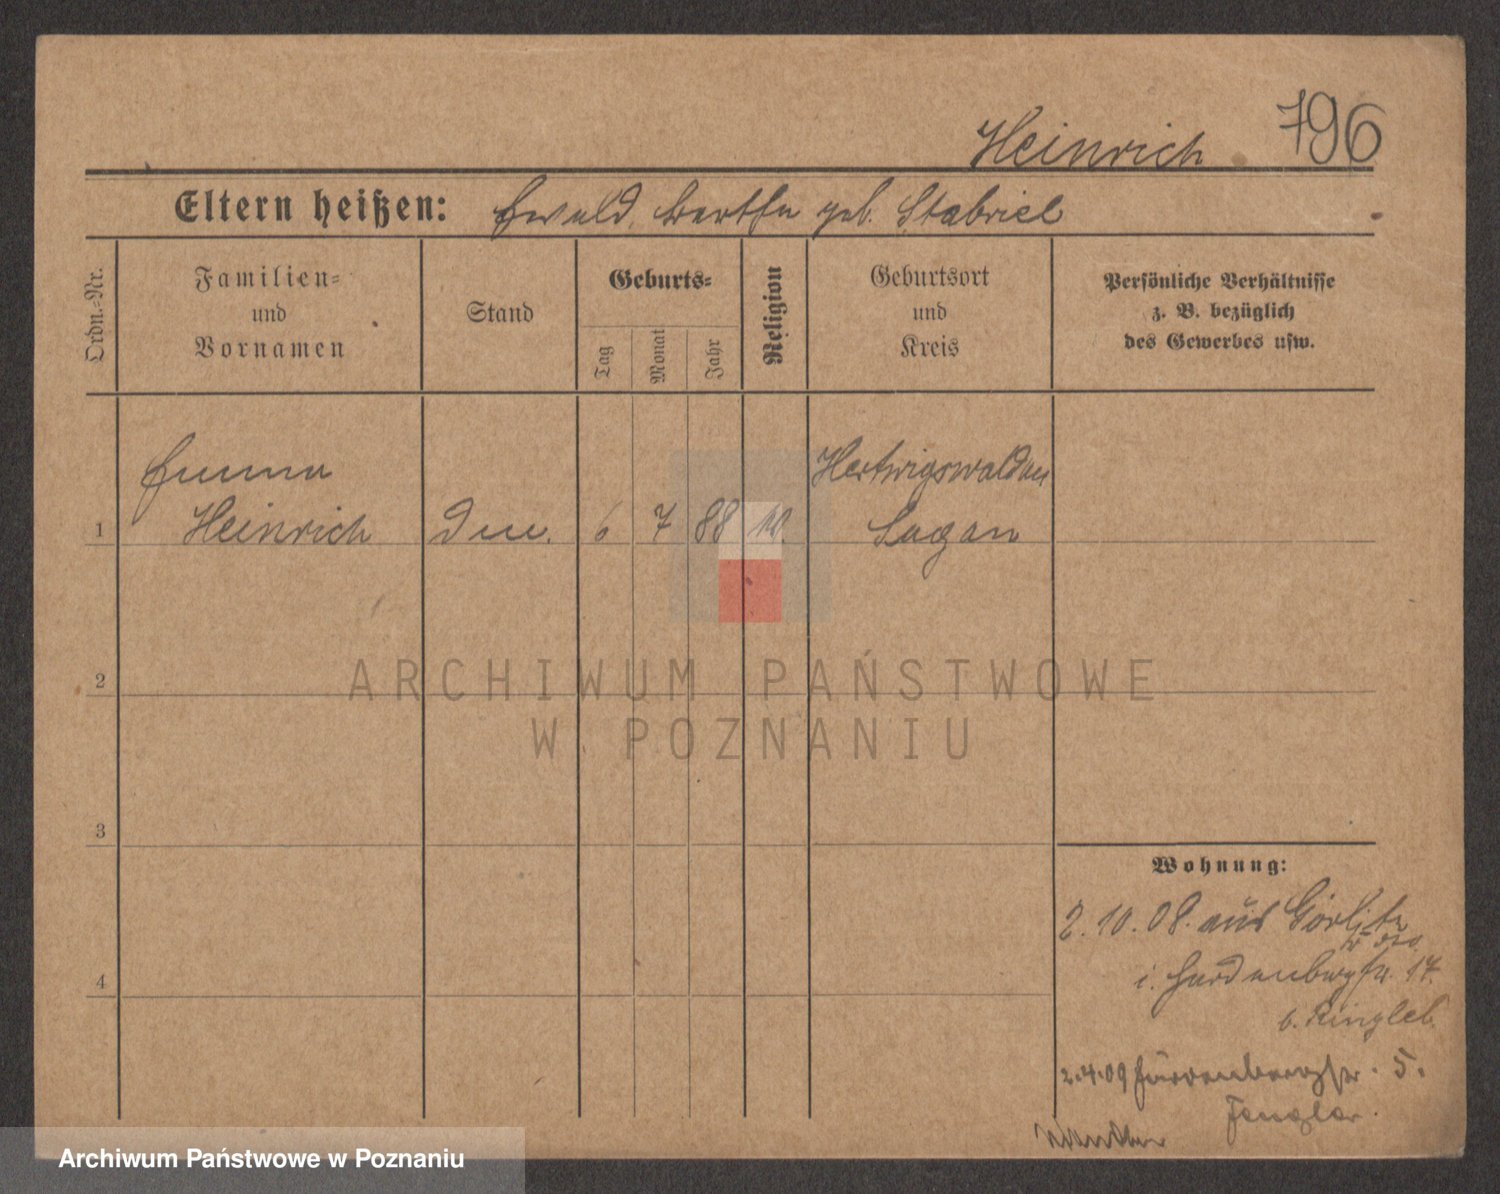 Heinrich 796
Eltern heißen: Ewald, Bertha geb. Stabriel
Ordn.-Nr.
Familien-
und
Vornamen
Stand
Geburts-
Tag
Monat
Jahr
Religion
Geburtsort
und
Kreis
Persönliche Verhältnisse
z. B. bezüglich
des Gewerbes usw.
Emma Hertwigswaldau
1 Heinrich 6 7 88 Sagan
2
ARCHIWUM PAŃSTWOWE
W POZNANIU
3
Wohnung:
2.10.08. aus Görlitz
4
i. Hardenbergstr. 17.
b. Ringleb.
2.4.09 5.
Archiwum Państwowe w Poznaniu